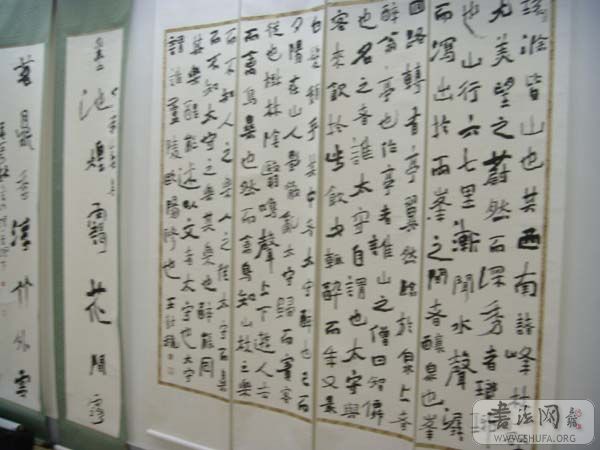 環滁皆山也其西南諸峰林
尤美望之蔚然而深秀者瑯
也山行六七里漸聞水聲潺
而瀉出於兩峯之間者釀泉也峯
回路轉有亭翼然臨於泉上者
醉翁亭也作亭者誰山之僧曰智僊
也名之者誰太守自謂也太守與
客來飲於此飲少輒醉而年又最
白髮頹乎其中者太守醉也已而
夕陽在山人影散亂太守歸而賓客
從也樹林陰翳鳴聲上下遊人去
而禽鳥樂也然而禽鳥知山林之樂
而不知人之樂人之從太守而樂
而不知太守之樂其樂也醉能同
其樂醒能述以文者太守也太守
謂誰廬陵歐陽修也 王
池煙雨花間
竹外雲
書法网
WWW.SHUFA.ORG